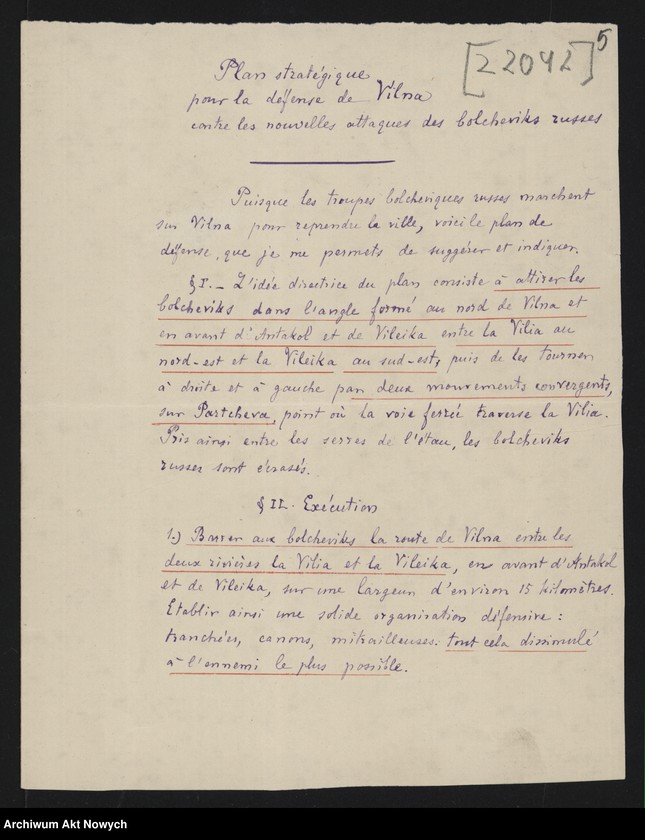 5
[22042]
Plan stratégique
pour la défense de Vilna
contre les nouvelles attaques des bolcheviks russes
Puisque les troupes bolcheviques russes marchent
sur Vilna pour reprendre la ville, voici le plan de
défense, que je me permets de suggérer et indiquer.
§ I. - L'idée directrice du plan consiste à attirer les
bolcheviks dans l'angle formé au nord de Vilna et
en avant d'Antakol et de Vileika entre la Vilia au
nord-est et la Vileika au sud-est, puis de les tourner
à droite et à gauche par deux mouvements convergents,
sur Partcheva, point où la voie ferrée traverse la Vilia.
Pris ainsi entre les serres de l'étau, les bolcheviks
russes sont écrasés.
§ II. Exécution
1.) Barrer aux bolcheviks la route de Vilna entre les
deux rivières la Vilia et la Vileika, en avant d'Antakol
et de Vileika, sur une largeur d'environ 15 kilomètres.
Etablir ainsi une solide organisation défensive :
tranchées, canons, mitrailleuses: tout cela dissimulé
à l'ennemi le plus possible.
Archiwum Akt Nowych